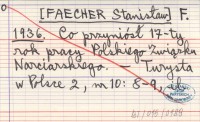 [FAECHER Stanisław] F.
1936. Co przyniósł 17-ty
rok pracy Polskiego Związku
Narciarskiego. Turysta
w Polsce 2, nr 10: 8-9,